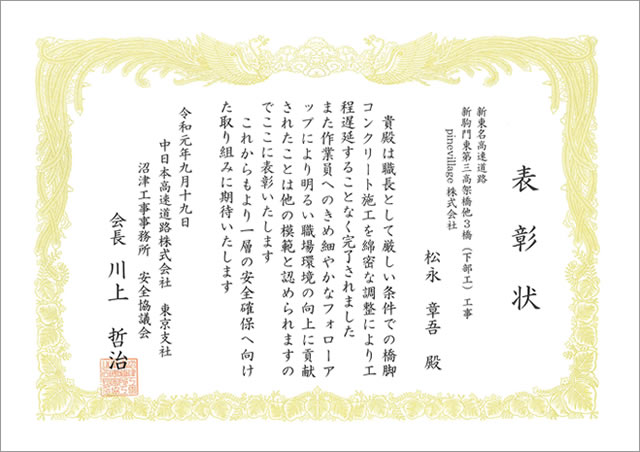 表彰状
新東名高速道路
新駒門東第三高架橋他3橋（下部工）工事
pinevillage 株式会社
松永 章吾 殿
貴殿は職長として厳しい条件での橋脚
コンクリート施工を綿密な調整により工
程遅延することなく完了されました
また作業員へのきめ細やかなフォローア
ップにより明るい職場環境の向上に貢献
されたことは他の模範と認められますの
でここに表彰いたします
これからもより一層の安全確保へ向け
た取り組みに期待いたします
令和元年九月十九日
中日本高速道路株式会社 東京支社
沼津工事事務所 安全協議会
会長 川上 哲治